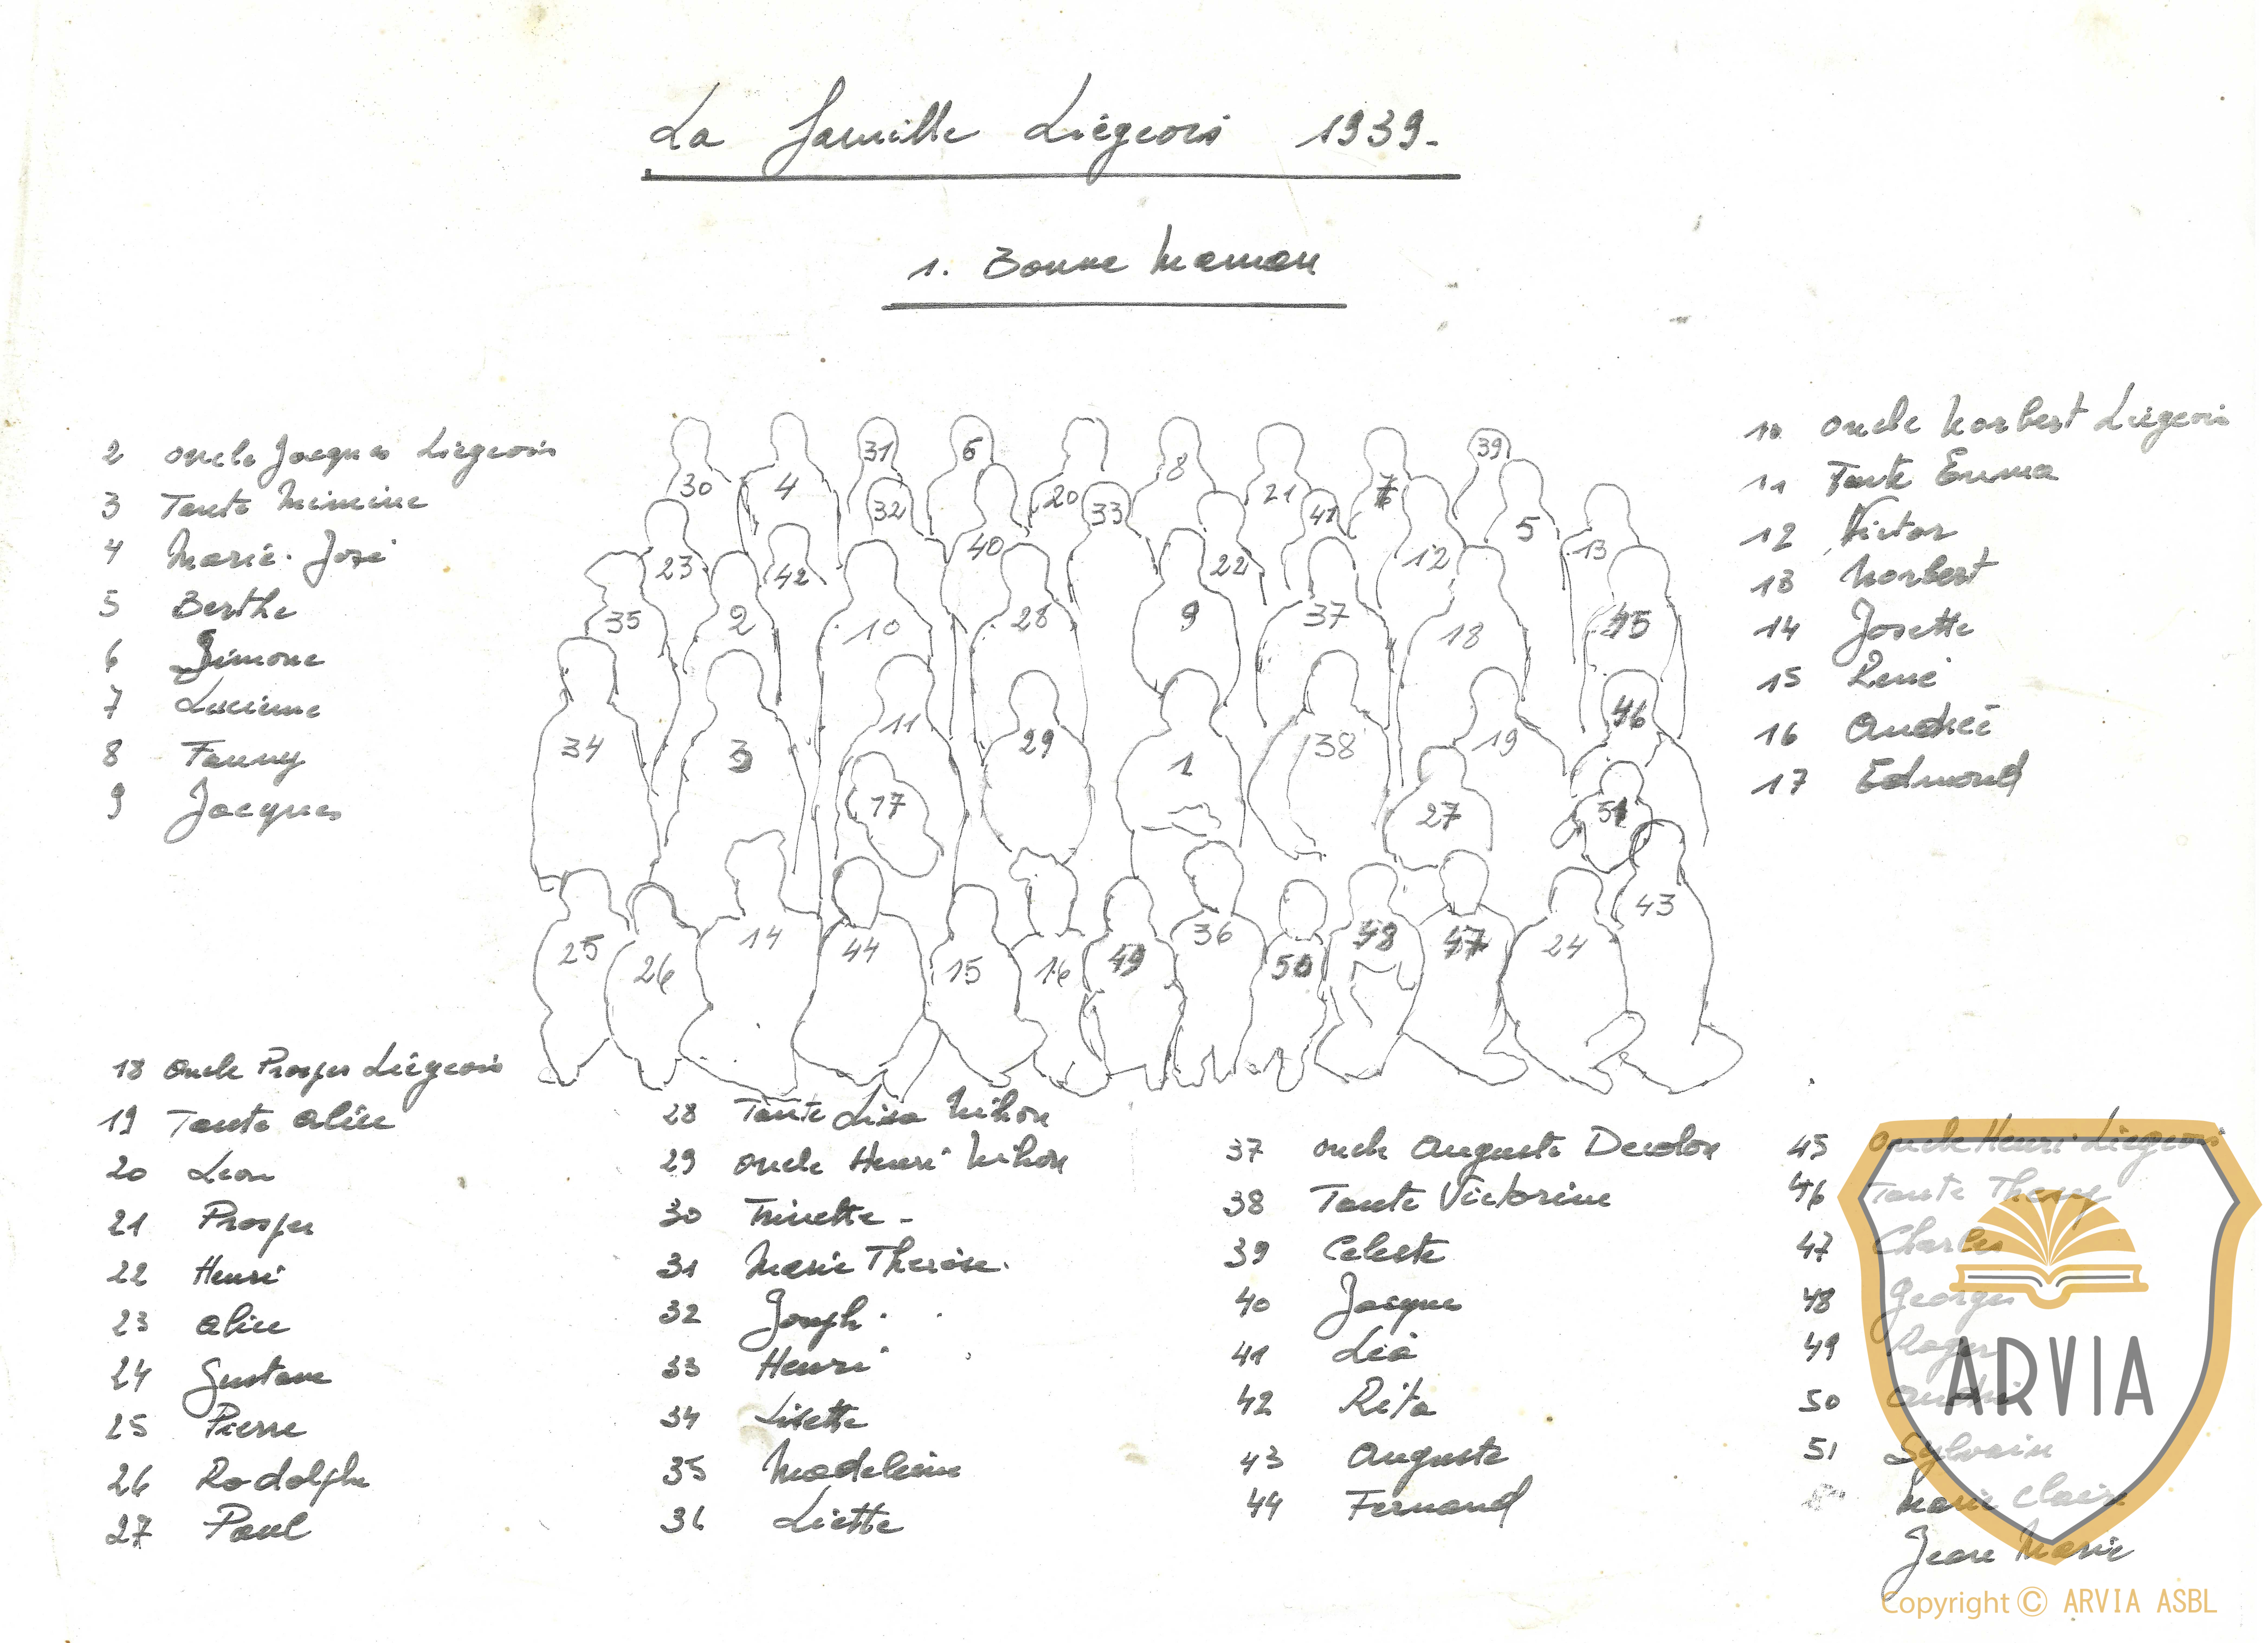 La famille Liégeois 1939.
1. Bonne Maman
2 Oncle Jacques Liégeois
3 Tante Mimine
4 Marie-José
5 Berthe
6 Simone
7 Lucienne
8 Fanny
9 Jacques
10 Oncle Norbert Liégeois
11 Tante Emma
12 Victor
13 Norbert
14 Josette
15 René
16 André
17 Edmond
30 4 31 6 20 8 21 7 39
32 40 33 41 5
23 42 22 12 13
35 2 10 28 9 37 18 45
34 3 11 29 1 38 19 46
17 27 51
25 26 14 44 15 16 49 36 50 48 47 24 43
18 Oncle Prosper Liégeois
19 Tante Alice
20 Léon
21 Prosper
22 Henri
23 Alice
24 Gustave
25 Pierre
26 Rodolphe
27 Paul
28 Tante Lisa Nihon
29 Oncle Henri Nihon
30 Trinette -
31 Marie Thérèse.
32 Joseph.
33 Henri
34 Lisette
35 Madeleine
36 Liette
37 Oncle Auguste Decolon
38 Tante Victorine
39 Celeste
40 Jacques
41 Léa
42 Rita
43 Auguste
44 Fernand
45 Oncle Henri Liégeois
46 Tante
47 Charles
48 Georges
49 Roger
50 André
51 Sylvain
Marie Claire
Jean Marie
ARVIA
Copyright © ARVIA ASBL